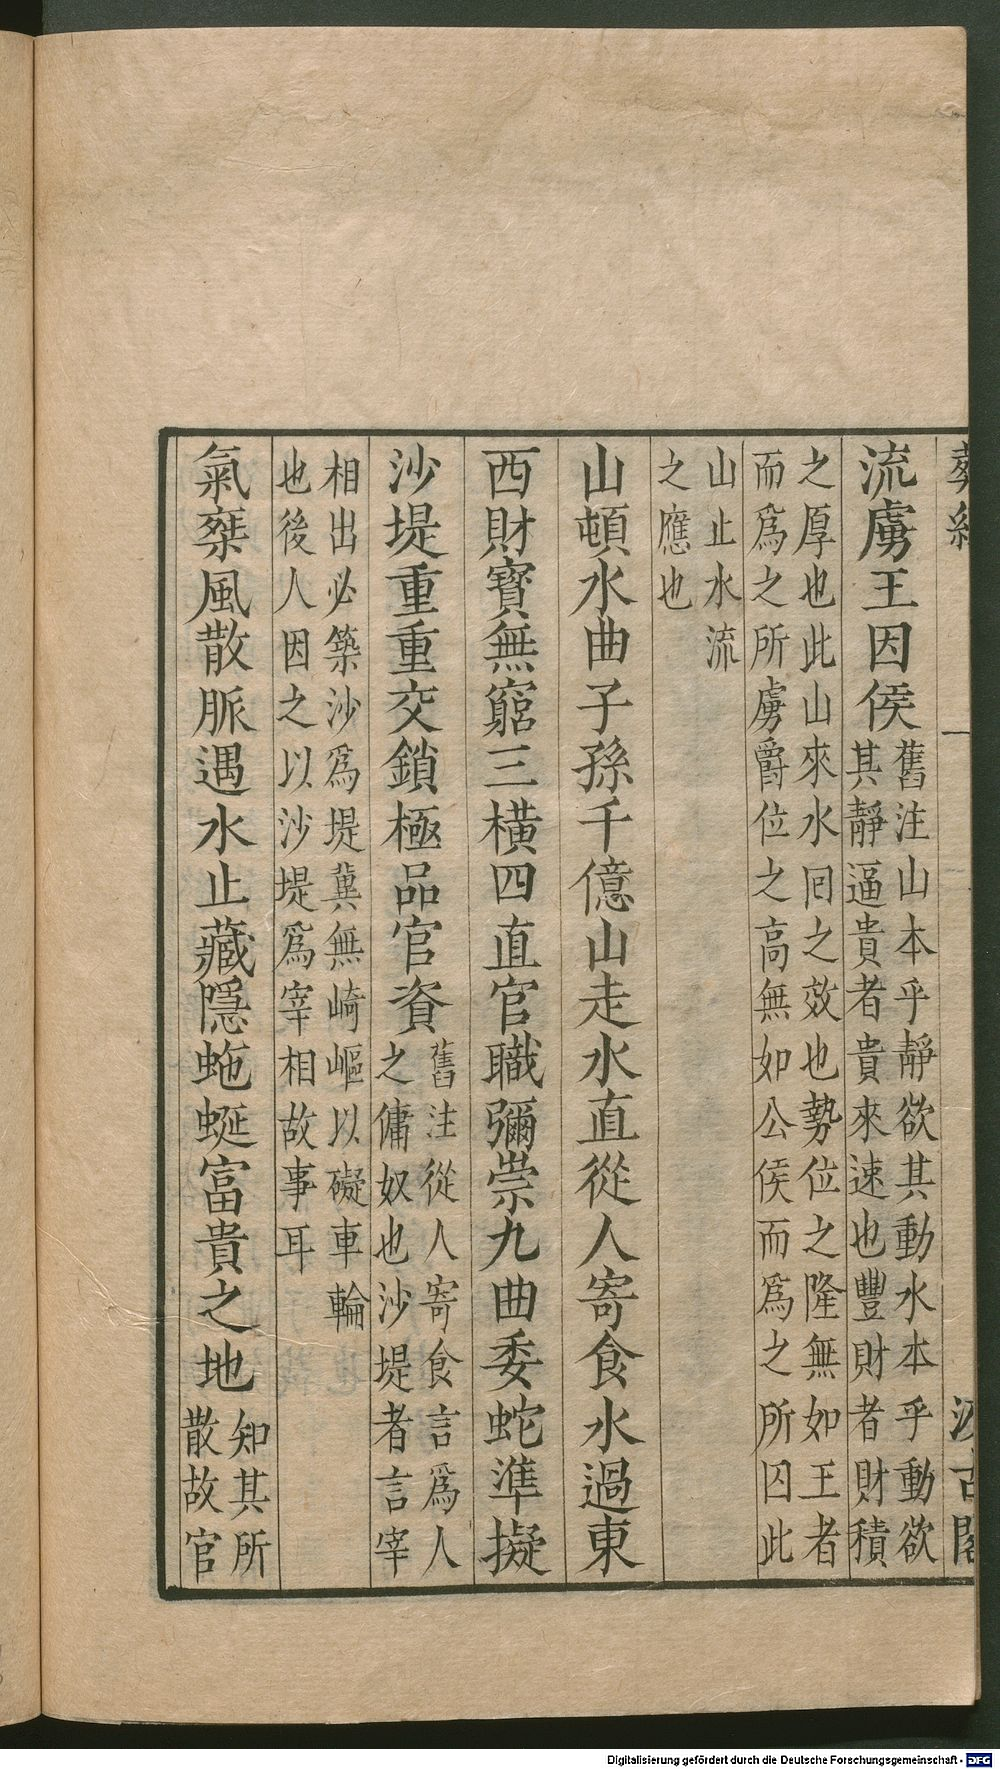 葬經
一
汲古閣
流虜王囚侯舊注山本乎靜欲其動水本乎動欲
其靜逼貴者貴來速也豐財者財積
之厚也此山來水囘之效也勢位之隆無如王者
而爲之所虜爵位之高無如公侯而爲之所囚此
山止水流
之應也
山頓水曲子孫千億山走水直從人寄食水過東
西財寶無窮三橫四直官職彌崇九曲委蛇準擬
沙堤重重交鎖極品官資舊注從人寄食言爲人
之傭奴也沙堤者言宰
相出必築沙爲堤冀無崎嶇以礙車輪
也後人因之以沙堤爲宰相故事耳
氣乘風散脈遇水止藏隱蜿蜒富貴之地知其所
散故官
Digitalisierung gefördert durch die Deutsche Forschungsgemeinschaft - DFG